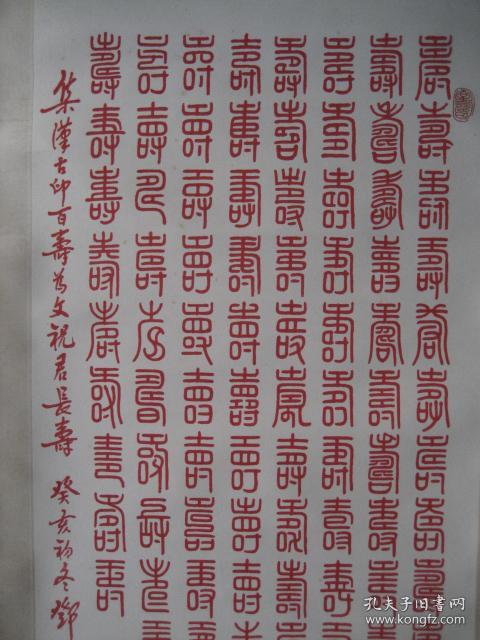 壽壽壽壽壽壽壽壽壽壽
壽壽壽壽壽壽壽壽壽壽
壽壽壽壽壽壽壽壽壽壽
壽壽壽壽壽壽壽壽壽壽
壽壽壽壽壽壽壽壽壽壽
壽壽壽壽壽壽壽壽壽壽
壽壽壽壽壽壽壽壽壽
壽壽壽壽壽壽壽壽壽
集漢古印百壽為文祝君長壽 癸亥初冬鄧
孔夫子旧书网
www.kongfz.com